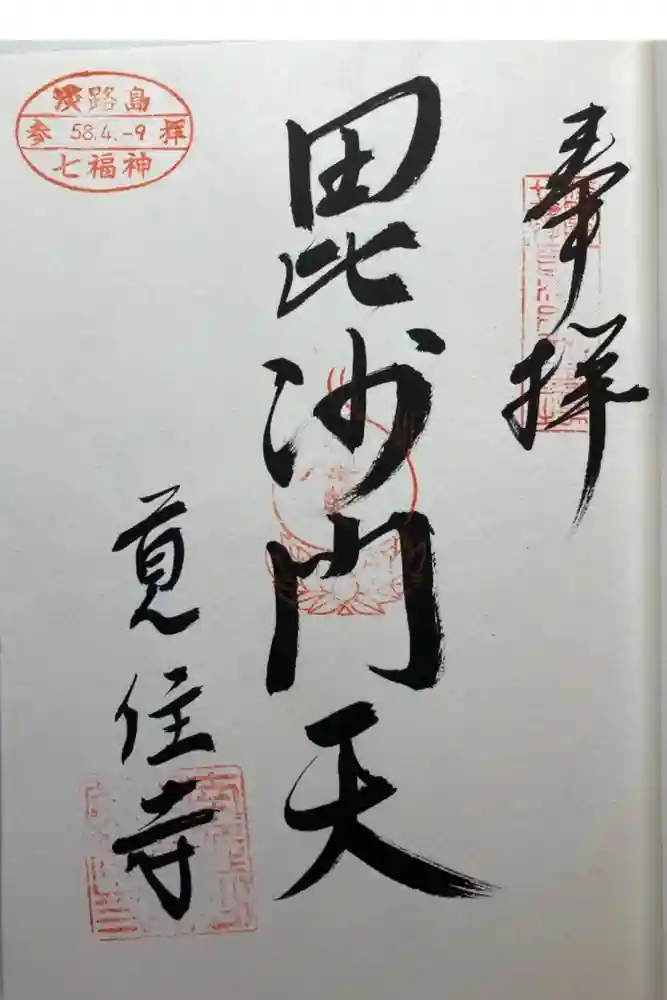 奉拝
毘沙門天
覚住寺
淡路島
参 58.4.-9 拝
七福神